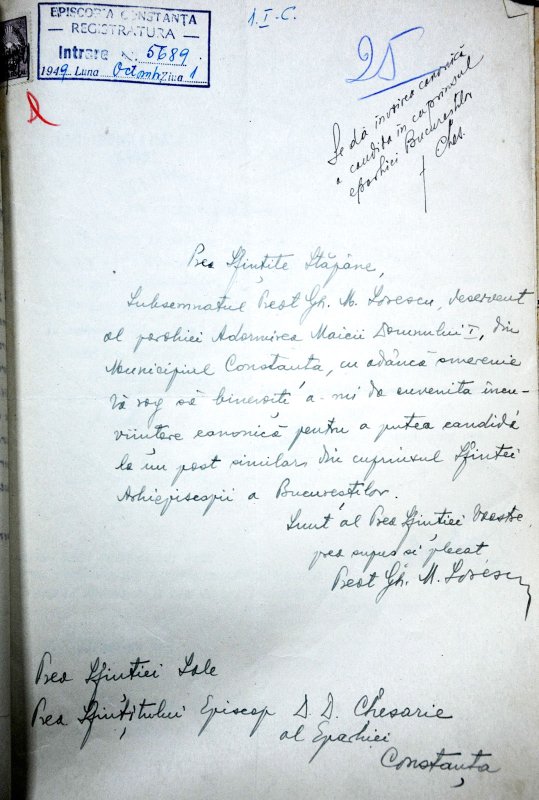 EPISCOPIA CONSTANȚA
— REGISTRATURA —
Intrare N. 5689
1949 Luna Octomb. Ziua 1
1.I.C.
25
Se dă învoirea canonică
a candida în cuprinsul
eparhiei Bucureștilor
† Ches.
Prea Sfințite Stăpâne,
Subsemnatul Preot Gh. M. Lovescu, deservent
al parohiei Adormirea Maicii Domnului I, din
Municipiul Constanta, cu adâncă smerenie
Vă rog să binevoiti a-mi da cuvenita incu-
viintare canonică pentru a putea candidá
la un post similar din cuprinsul Sfintei
Arhiepiscopii a Bucurestilor.
Sunt al Prea Sfintiei Voastre,
prea supus si plecat
Preot Gh. M.
Prea Sfintiei Sale
Prea Sfințitului Episcop D. D. Chesarie
al Eparhiei
Constanța